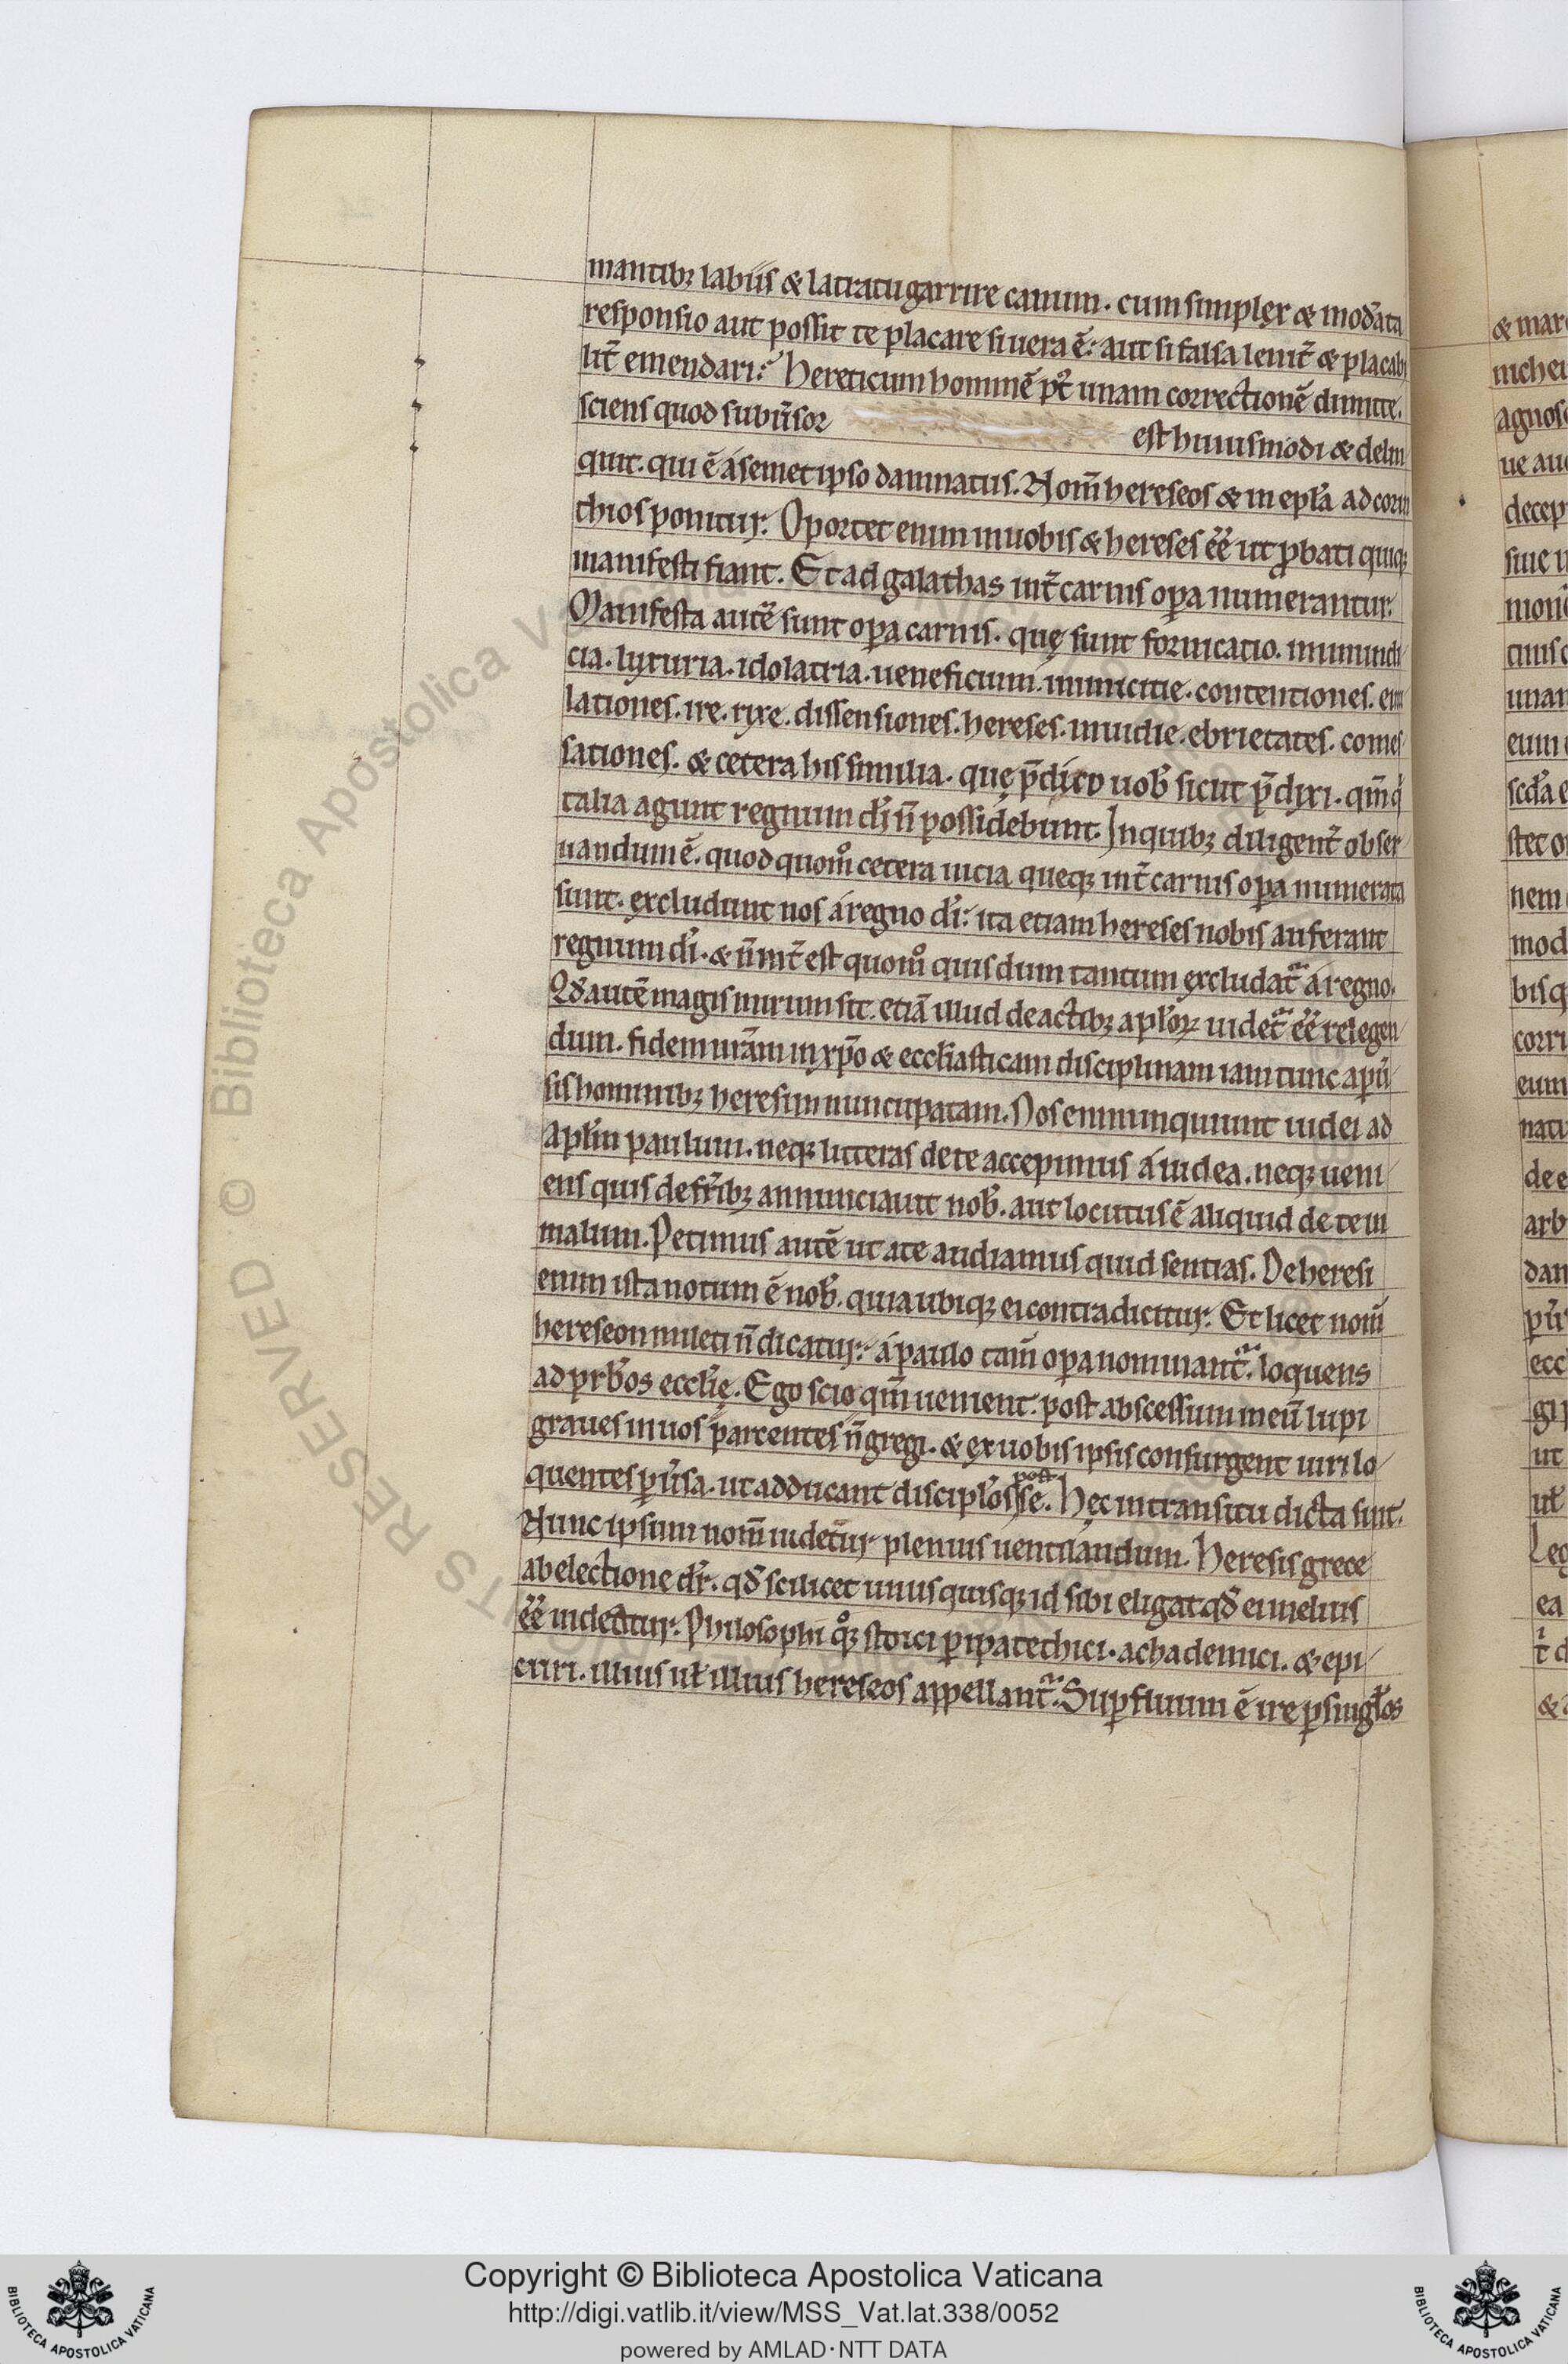 mantibꝫ labiis & latratu garrire canum. cum simplex & mod̄ata
responsio aut possit te placare si uera ē: aut si falsa lenit̄ & placabi
lit̄ emendari: Hereticum hominē p̄t unam correctionē deuita.
sciens quod subūsor est huiusmodi & delin
quit. qui ē a semetipso damnatus. Nom̄ hereseos & in epl̄a ad corin
thios ponitur. Oportet enim in uobis & hereses ēē ut ꝓbati quiqꝫ
manifesti fiant. Et ad galathas int̄ carnis oꝑa numerantur.
Manifesta autē sunt oꝑa carnis. quę sunt fornicatio. inmundi
cia. luxuria. idolatria. ueneficium. inimicitie. contentiones. emu
lationes. ire. rixe. dissensiones. hereses. inuidie. ebrietates. comes
sationes. & cetera his similia. quę p̄dico uob̄ sicut p̄dixi. qm̄ q̇
talia agunt regnum dī n̄ possidebunt. In quibꝫ diligent̄ obser
uandum ē. quod quom̊ cetera uicia queqꝫ int̄ carnis oꝑa numerata
sunt. excludunt nos a regno dī: ita etiam hereses nobis auferant
regnum dī. & n̄ int̄est quom̊ quis dum tantum excludat᷑ a regno.
Qd̄ autē magis mirum sit. etiā illud de actibꝫ apl̄oꝝ uidet᷑ ēē relegen
dum. fidem nrām in xp̄o & eccl̄iasticam disciplinam iam tunc a ꝑū
sis hominibꝫ heresim nuncupatam. Nos enim inquiunt iudei ad
apl̄m paulum. neqꝫ litteras de te accepimus a iudea. neqꝫ ueni
ens quis de fr̄ibꝫ annunciauit nob̄. aut locutus ē aliquid de te in
malum. Petimus autē ut a te audiamus quid sentias. De heresi
enim ista notum ē nob̄. quia ubiqꝫ ei contradicitur. Et licet nom̄
hereseon inueti n̄ dicatur: a paulo tam̄ oꝑa nominant᷑. loquens
ad prb̄os eccl̄ię. Ego scio qm̄ uenient. post abscessum meū lupi
graues in uos parcentes n̄ gregi. & ex uobis ipsis consurgent uiri lo
quentes ꝑūsa. ut adducant discipl̄os post se. Hęc in transitu dicta sint.
Nunc ipsum nom̄ uidetur plenius uentilandum. Heresis grece
ab electione dr̄. qd̄ scilicet unusquisqꝫ id sibi eligat qd̄ ei melius
ēē uideatur. Philosophi q̊qꝫ stoici ꝑipatethici. achademici. & epi
curi. illius ul̄ illius hereseos appellant᷑. Suꝑfluum ē ire ꝑ singl̄os
Copyright © Biblioteca Apostolica Vaticana
http://digi.vatlib.it/view/MSS_Vat.lat.338/0052
powered by AMLAD·NTT DATA
BIBLIOTECA APOSTOLICA VATICANA
BIBLIOTECA APOSTOLICA VATICANA